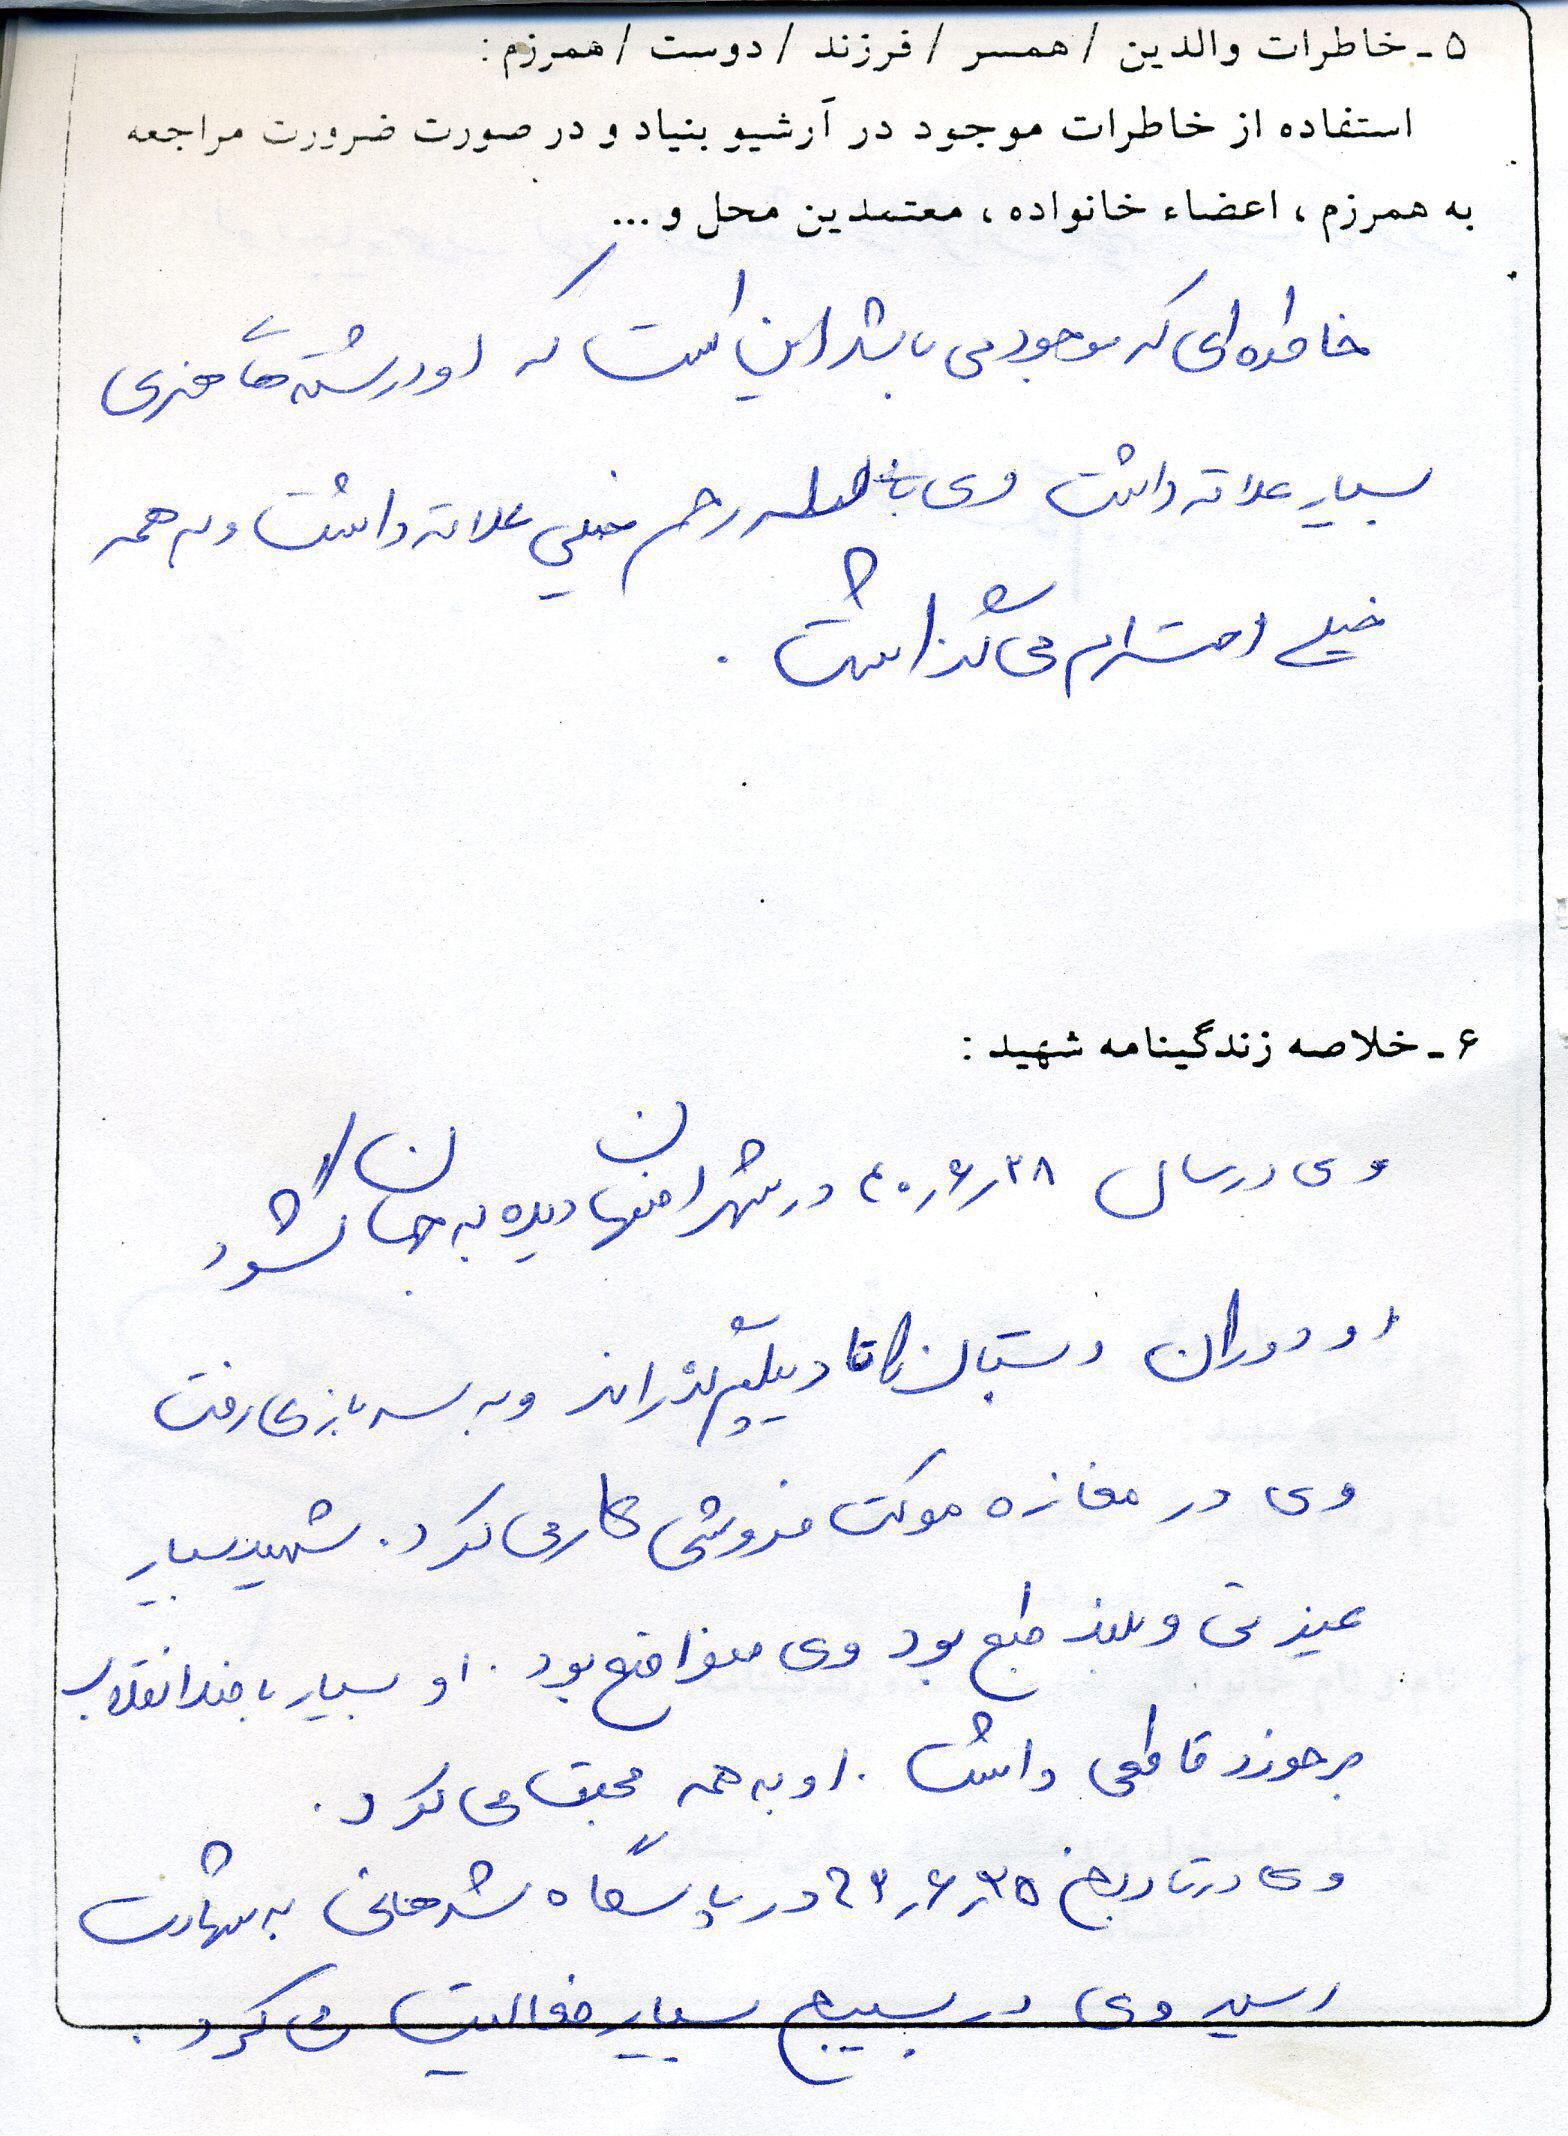 ۵ - خاطرات والدین / همسر / فرزند / دوست / همرزم :
استفاده از خاطرات موجود در آرشیو بنیاد و در صورت ضرورت مراجعه
به همرزم ، اعضاء خانواده ، معتمدین محل و ...
خاطره‌ای که موجود می باشد این است که او در رشته های هنری
بسیار علاقه داشت وی با صله رحم خیلی علاقه داشت و به همه
خیلی احترام می گذاشت .
۶ - خلاصه زندگینامه شهید :
وی در سال ۴۰٫۶٫۲۸ در شهر اصفهان دیده به جهان گشود
او دوران دبستان را تا دیپلم گذراند و به سربازی رفت
وی در مغازه موکت فروشی کار می کرد . شهید بسیار
غیرتی و بلند طبع بود وی متواضع بود . او بسیار با ضد انقلاب
برخورد قاطعی داشت . او به همه محبت می کرد .
وی در تاریخ ۶۳٫۶٫۳۵ در پاسگاه شرهانی به شهادت
رسید وی در بسیج بسیار فعالیت می کرد .